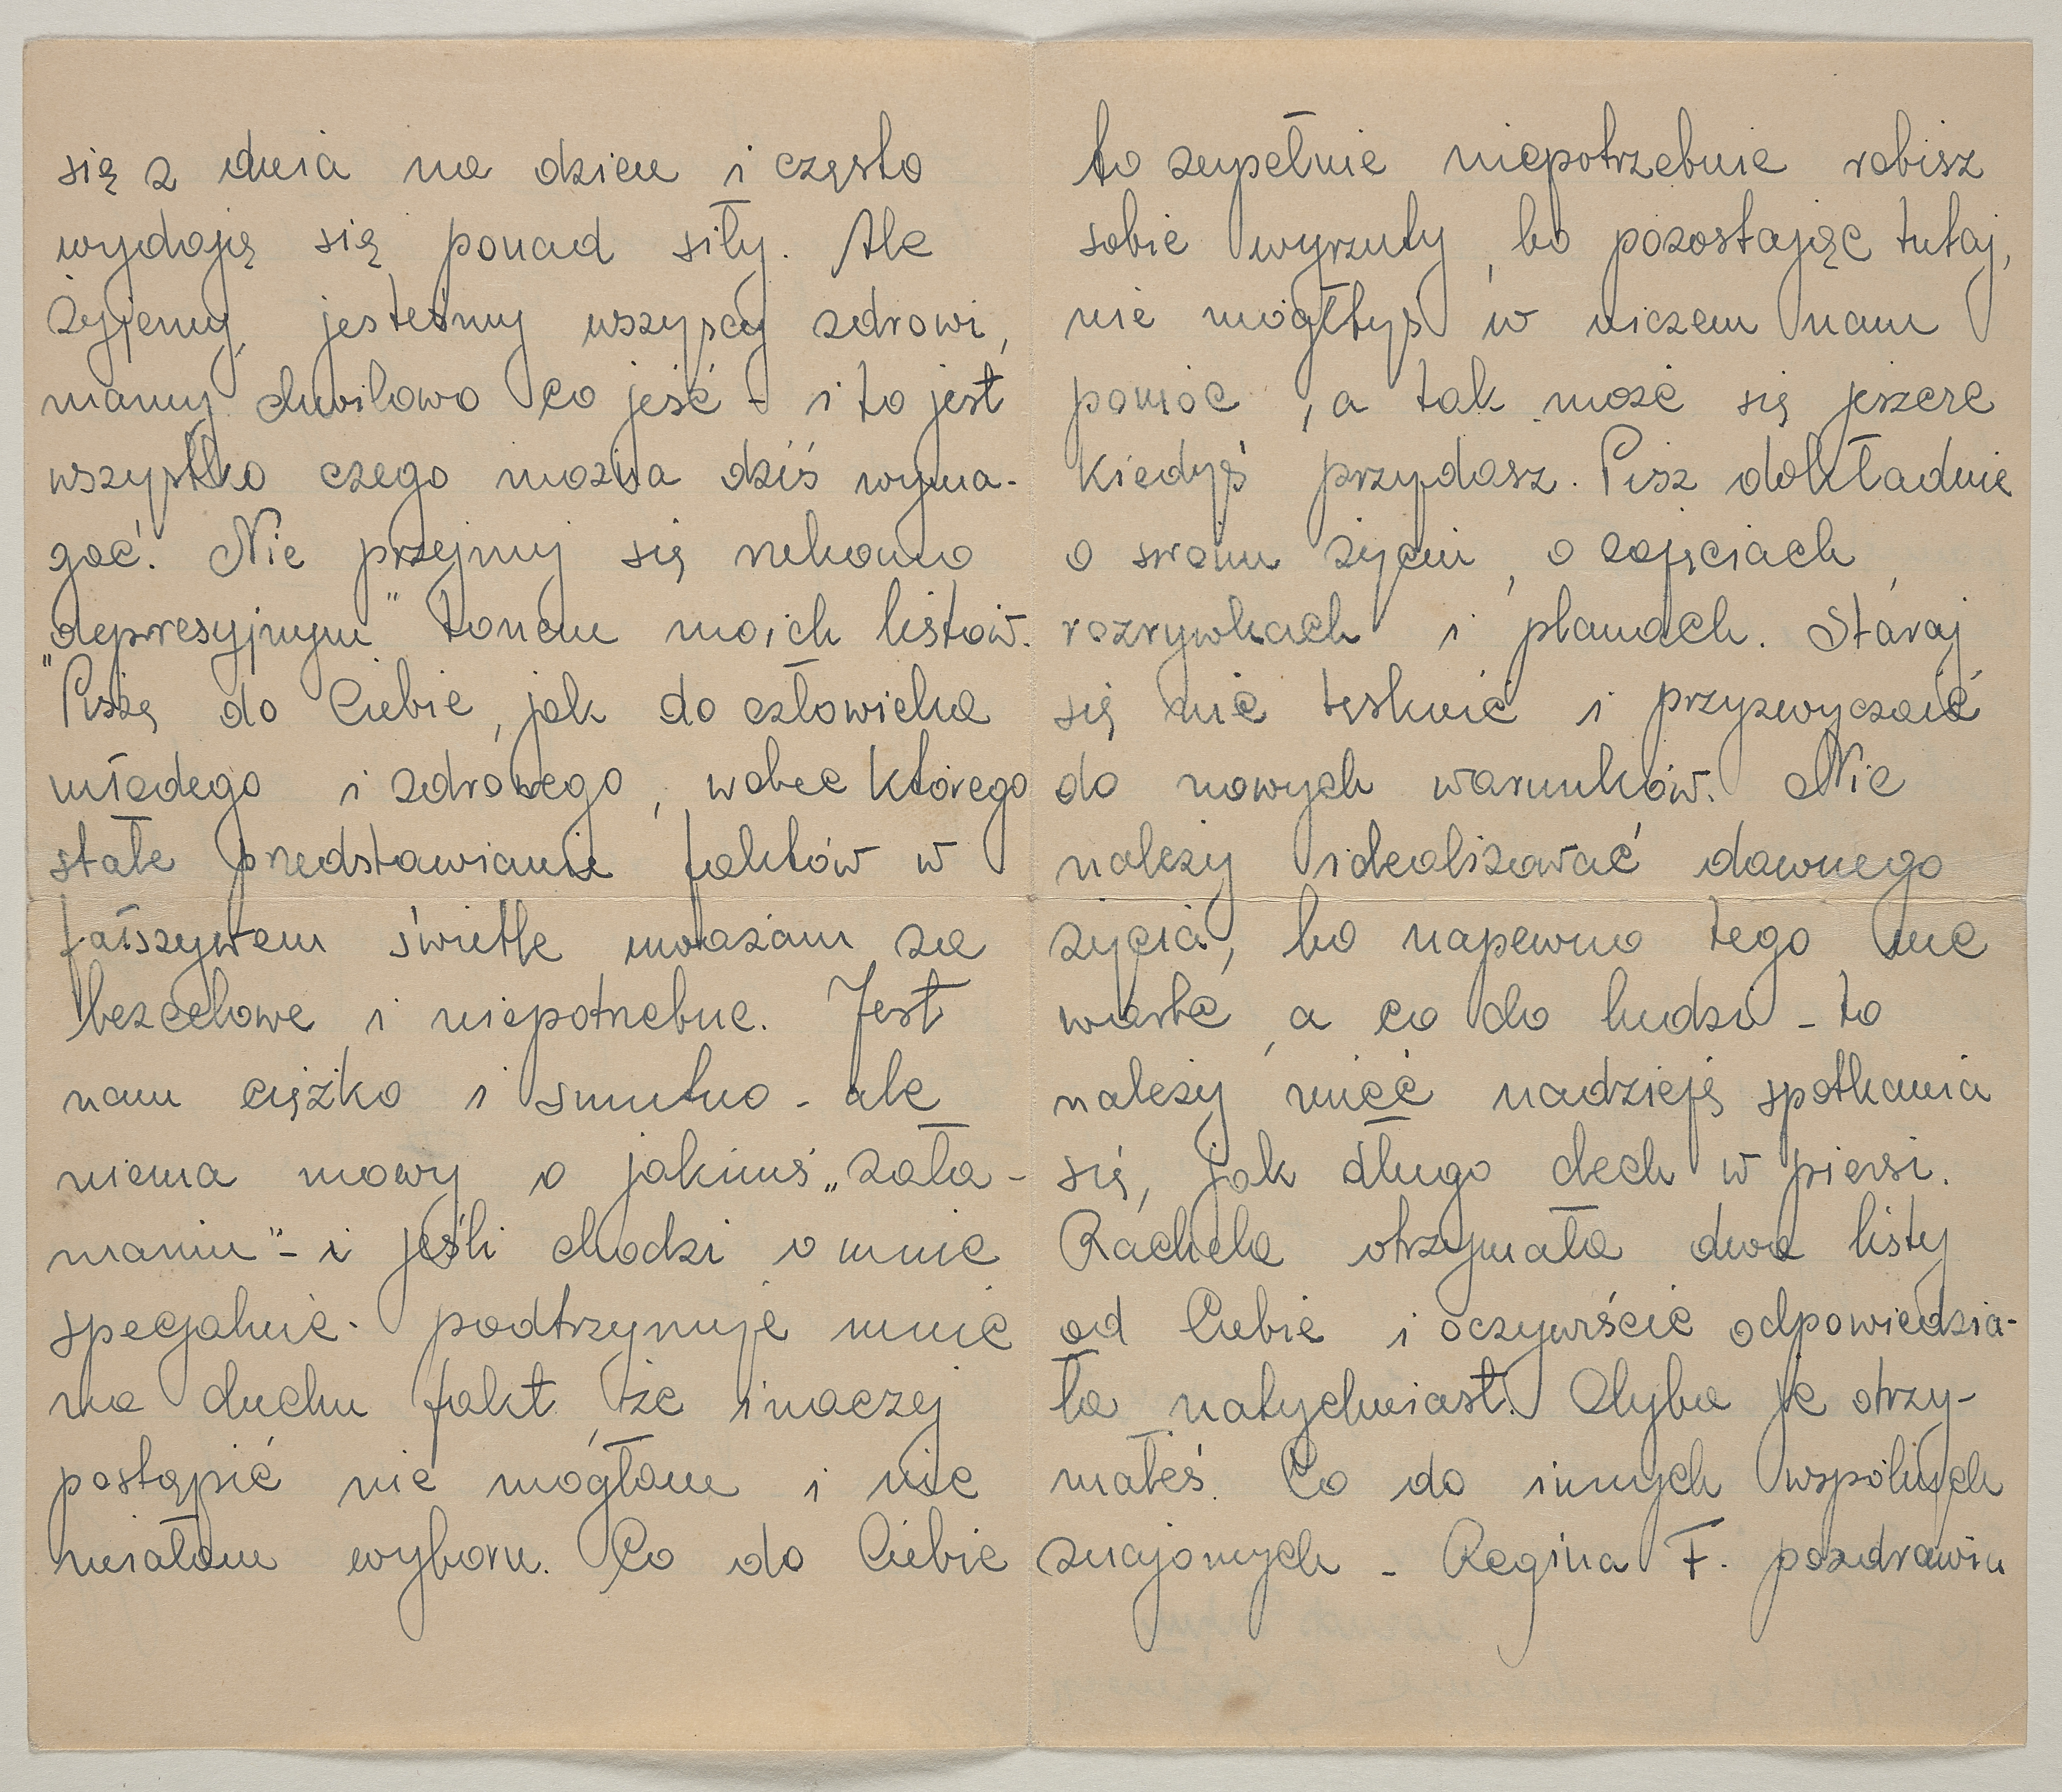 się z dnia na dzień i często
wydają się ponad siły. Ale
żyjemy, jesteśmy wszyscy zdrowi,
mamy chwilowo co jeść - i to jest
wszystko czego można dziś wyma-
gać. Nie przejmuj się rzekomo
"depresyjnym" tonem moich listów.
Piszę do Ciebie, jak do człowieka
młodego i zdrowego, wobec którego
stałe przedstawianie faktów w
fałszywem świetle uważam za
bezcelowe i niepotrzebne. Jest
nam ciężko i smutno - ale
niema mowy o jakimś „zała-
maniu" - i jeśli chodzi o mnie
specjalnie - podtrzymuje mnie
na duchu fakt, że inaczej
postąpić nie mogłam i nie
miałam wyboru. Co do Ciebie
to zupełnie niepotrzebnie robisz
sobie wyrzuty, bo pozostając tutaj,
nie mógłbyś w niczem nam
pomóc, a tak może się jeszcze
kiedyś przydasz. Pisz dokładnie
o swem życiu, o zajęciach,
rozrywkach i planach. Staraj
się nie tęsknić i przyzwyczaić
do nowych warunków. Nie
należy idealizować dawnego
życia, bo napewno tego nie
warte, a co do ludzi - to
należy mieć nadzieję spotkania
się, jak długo dech w piersi.
Rachela otrzymała dwa listy
od Ciebie i oczywiście odpowiedzia-
ła natychmiast. Chyba je otrzy-
małeś. Co do innych wspólnych
znajomych - Regina F. pozdrawia